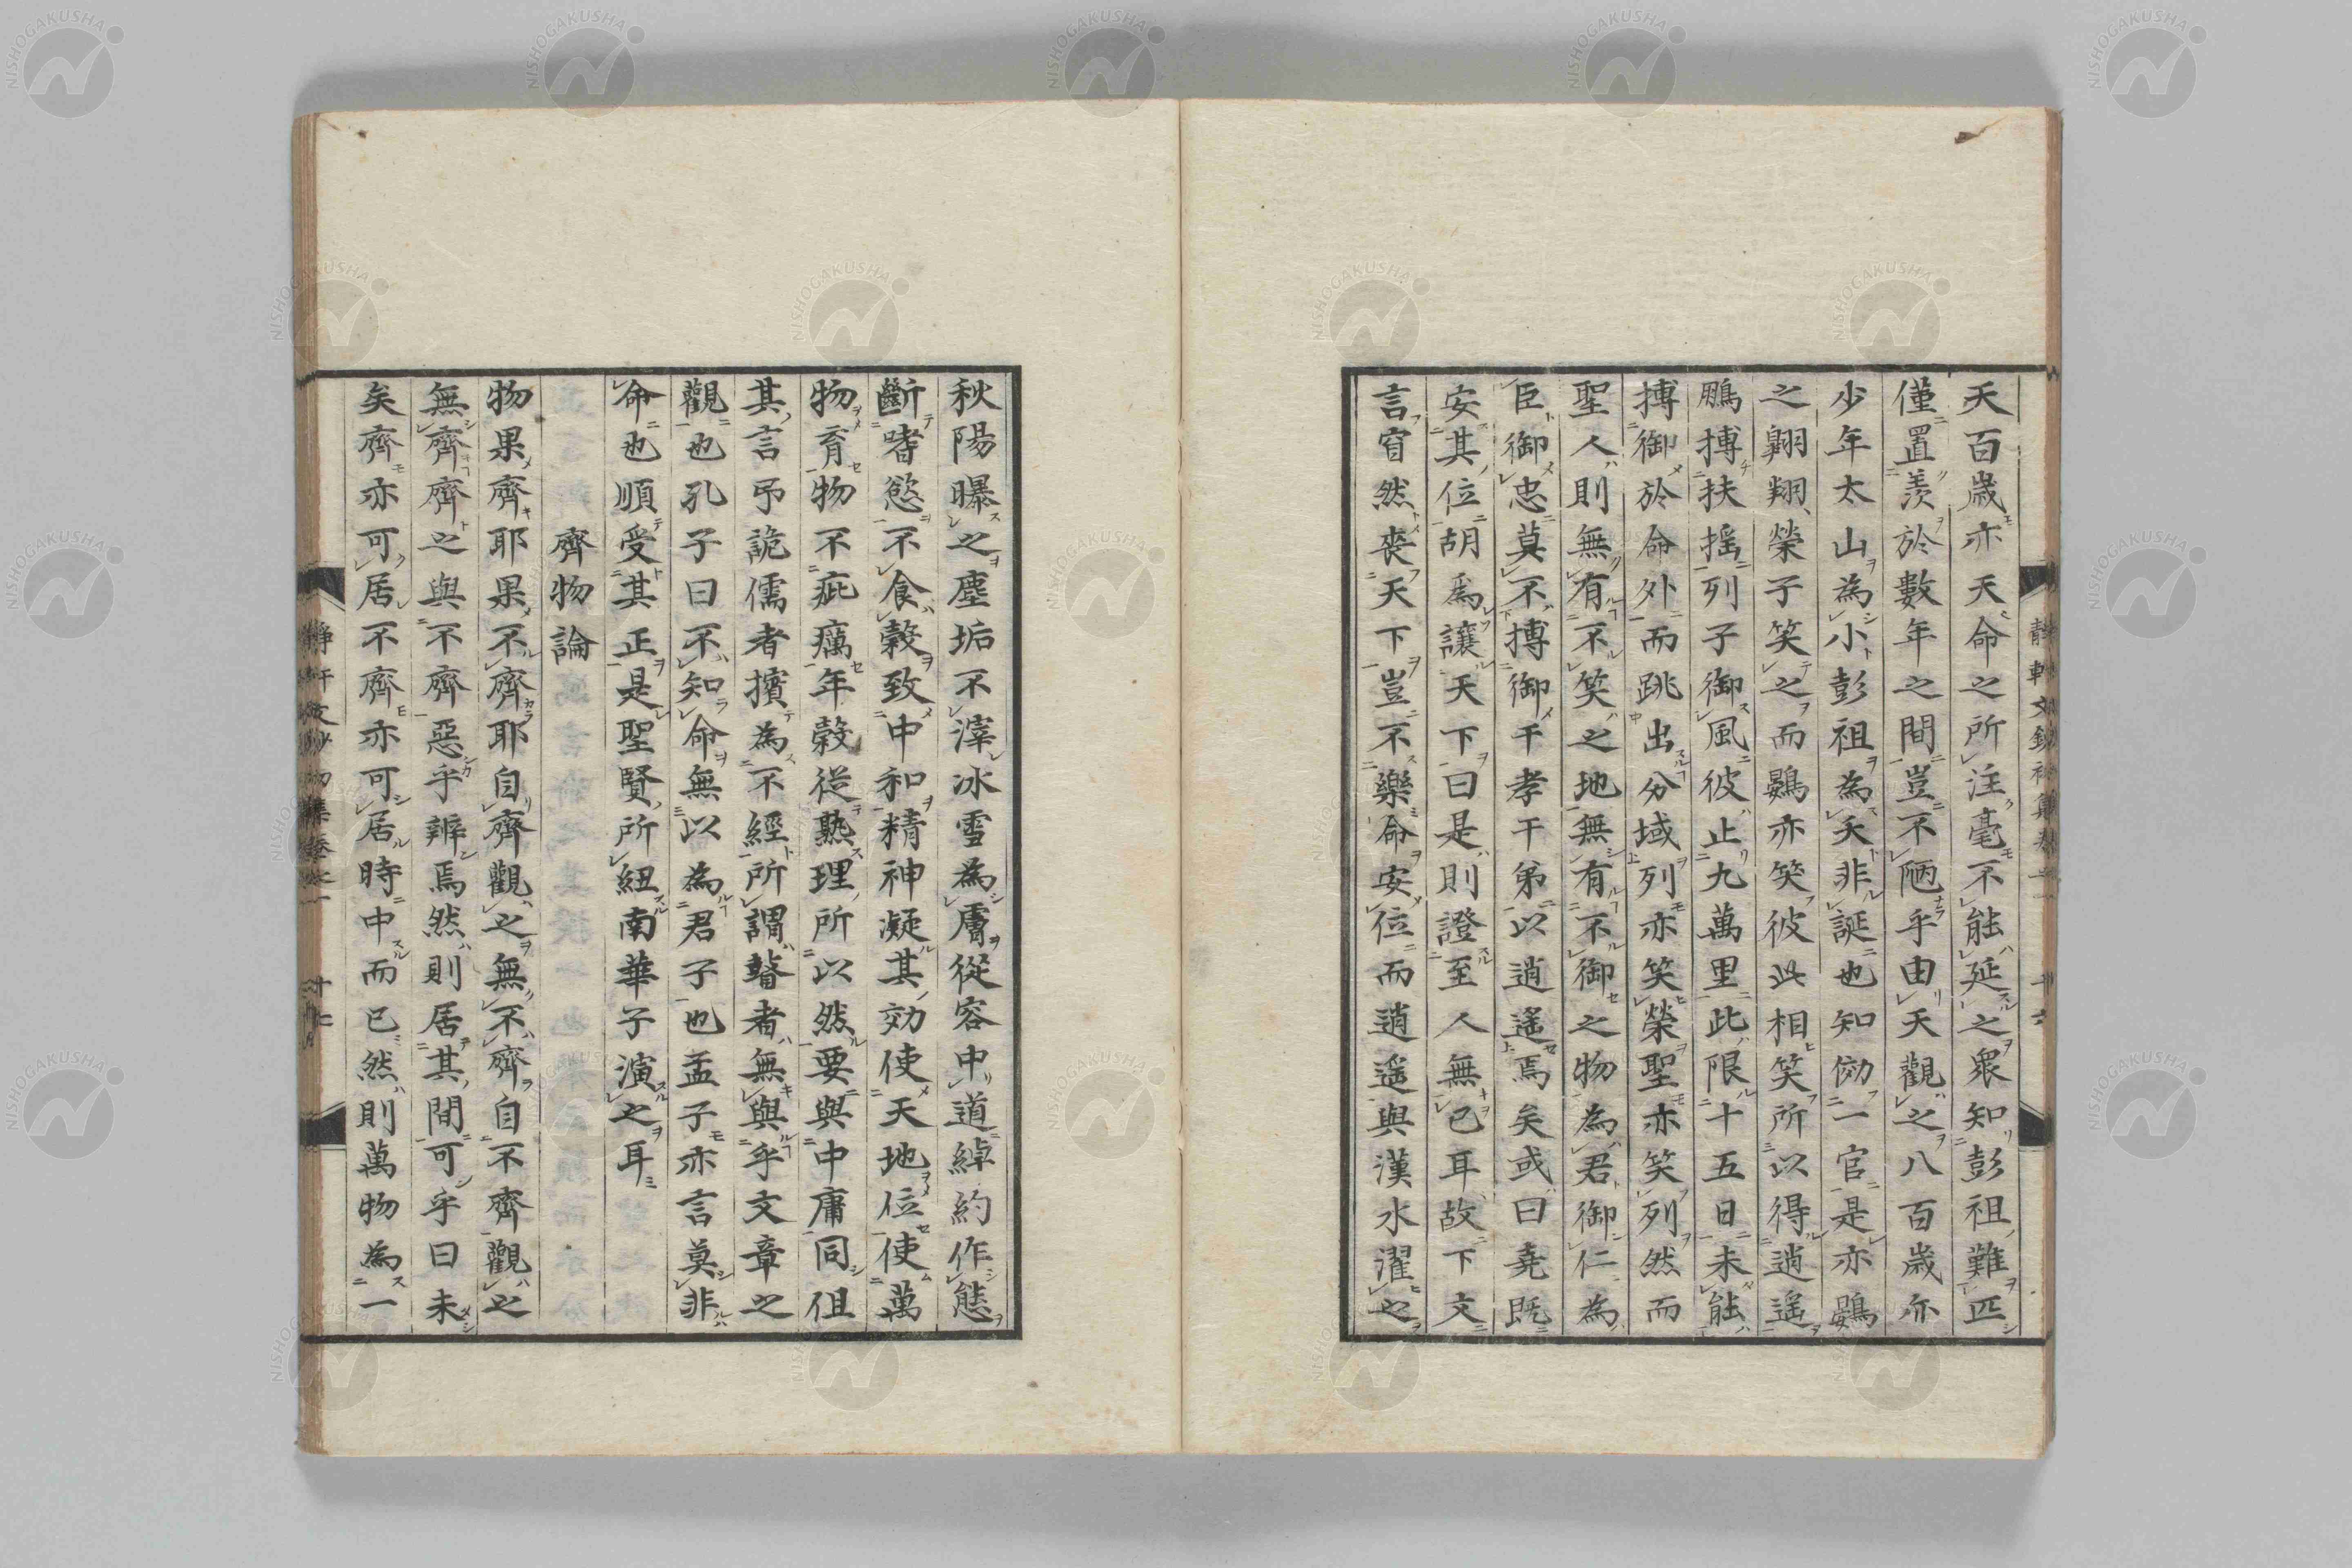 天百歳亦天命之所注毫不能延之衆知彭祖難匹
僅置羨於數年之間豈不陋乎由天觀之八百歳亦
少年太山為小彭祖為夭非誕也知効一官是亦鷃
之翺翔榮子笑之而鷃亦笑彼此相笑所以得逍遥
鵬摶扶揺列子御風彼止九萬里此限十五日未能
摶御於命外而跳出分域列亦笑榮聖亦笑列然而
聖人則無有不笑之地無有不御之物為君御仁為
臣御忠莫不摶御干孝干弟以逍遥焉矣或曰堯既
安其位胡爲讓天下曰是則證至人無已耳故下文
言窅然喪天下豈不樂命安位而逍遥與漢水濯之
秋陽曝之塵垢不滓冰雪為膚從容中道綽約作態
斷嗜慾不食穀致中和精神凝其効使天地位使萬
物育物不疵癘年穀從熟理所以然要與中庸同但
其言弔詭儒者擯為不經所謂瞽者無與乎文章之
觀也孔子曰不知命無以為君子也孟子亦言莫非
命也順受其正是聖賢所紐南華子演之耳
齊物論
物果齊耶果不齊耶自齊觀之無不齊自不齊觀之
無齊齊之與不齊惡乎辨焉然則居其間可乎曰未
矣齊亦可居不齊亦可居時中而已然則萬物為一
NISHOGAKUSHA